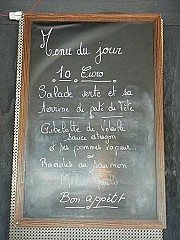 Menu du jour
10 Euro
Salade verte et sa
terrine de paté de Tête
Gibelotte de Volaille
sauce
et ses pommes vapeur
ou
Ravioles au saumon
Bon appétit